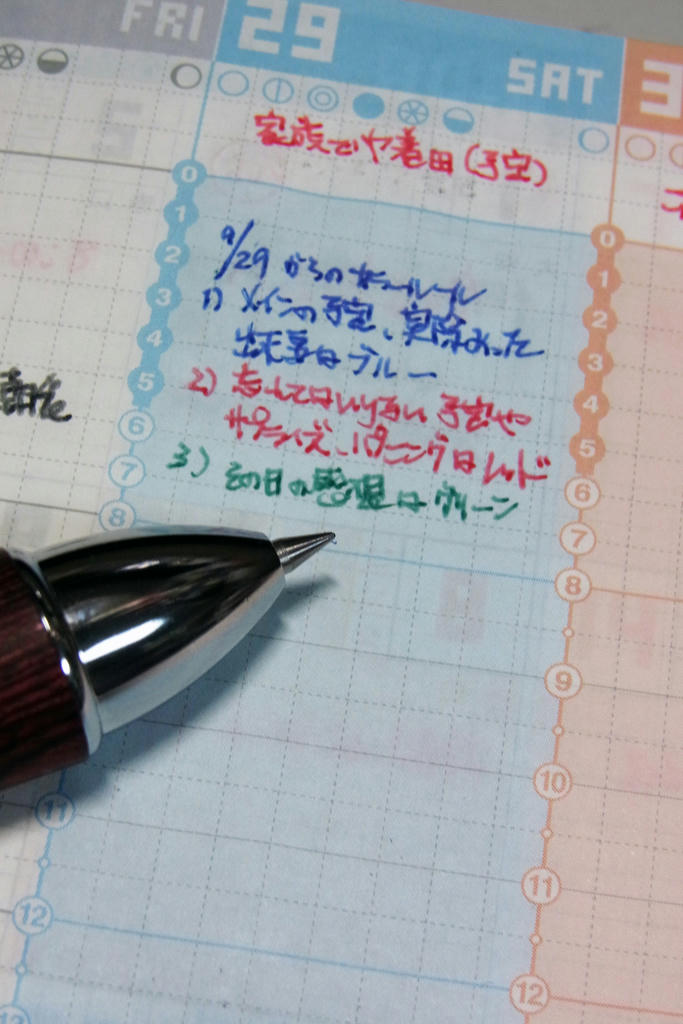 FRI
29
SAT
3
家族で
(予定)
9/29 からの
1) メインの予定、実際あった
出来事はブルー
2) 忘れてはいけない予定や
サプライズ、
はレッド
3) その日の感想はグリーン
0
1
2
3
4
5
6
7
8
11
12
0
1
2
3
4
5
6
7
8
9
10
11
12